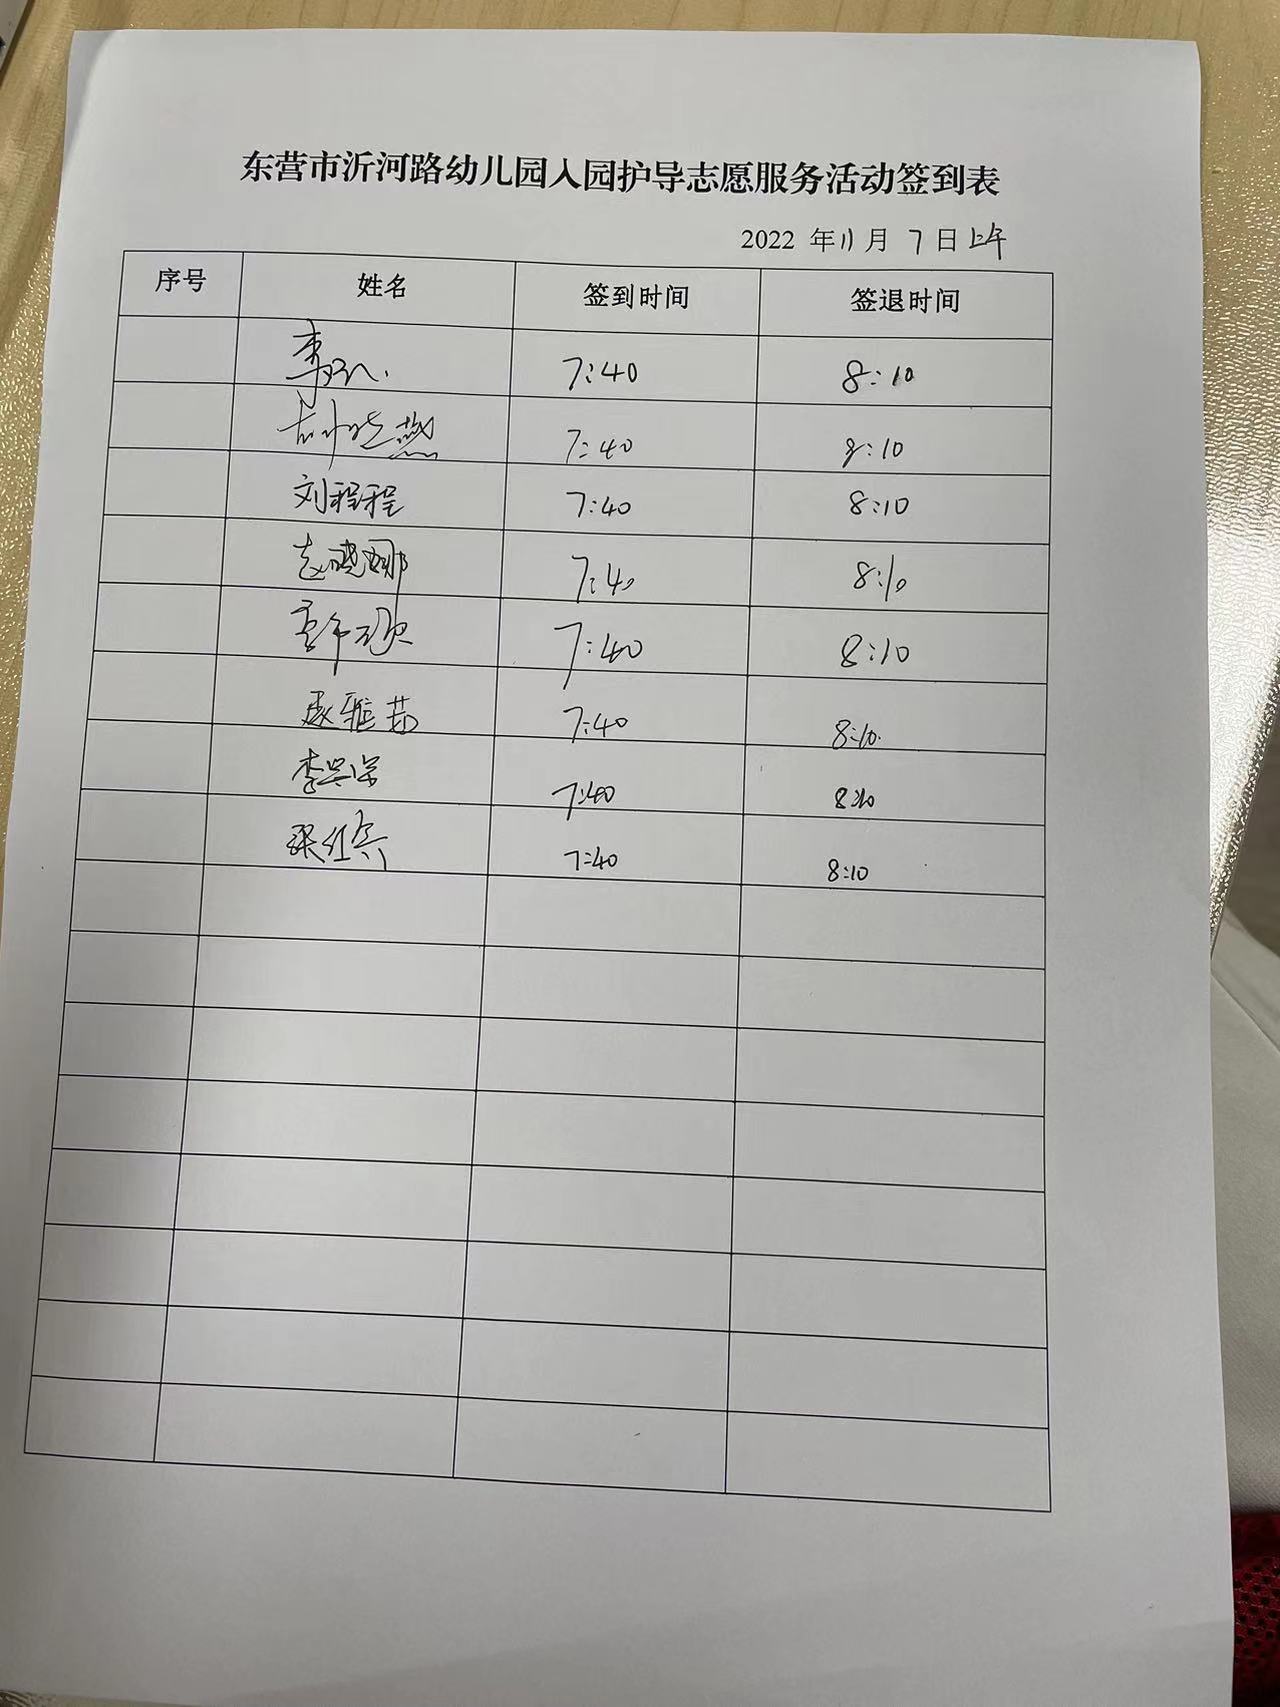 东营市沂河路幼儿园入园护导志愿服务活动签到表
2022 年 11 月 7 日 上午
序号 姓名 签到时间 签退时间
7:40 8:10
7:40 8:10
刘程程 7:40 8:10
赵晓娜 7:40 8:10
7:40 8:10
雅茹 7:40 8:10
李 7:40 8:10
张红兵 7:40 8:10